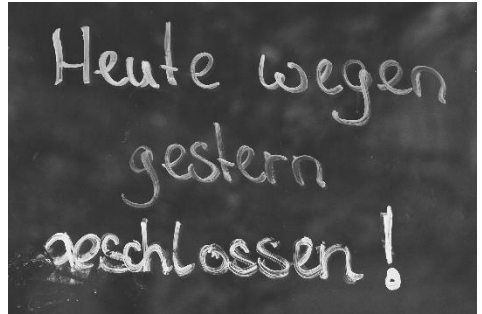 Heute wegen
gestern
geschlossen!